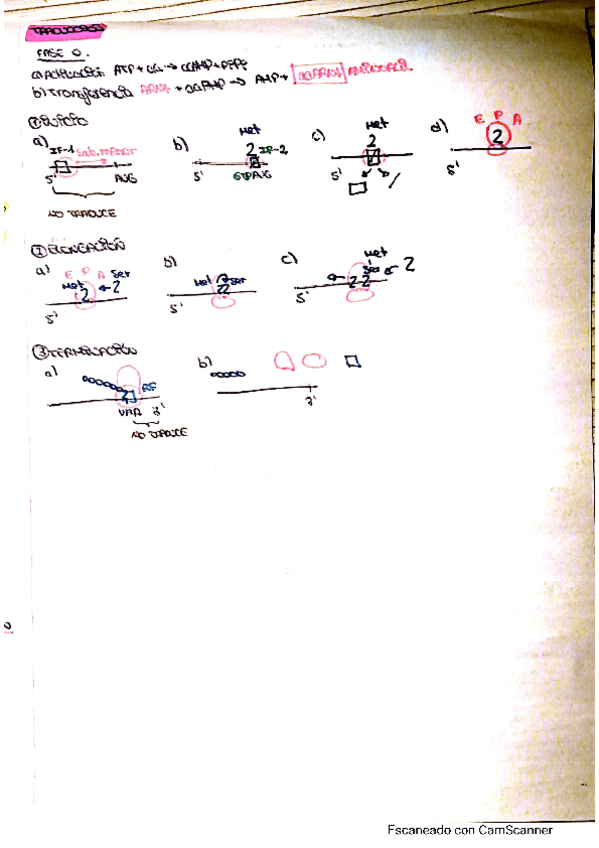 TRADUCCIÓN
FASE 0.
a) Activación: ATP + aa → aaAMP + PPi
b) Transferencia ARNt + aaAMP → AMP + aaARNt
① INICIO
a) b) c) d)
IF-1 Met 2 IF-2 Met 2 E P A 2
5' AUG 5' GTP AUG 5' 5'
NO TRADUCE
② ELONGACIÓN
a) b) c)
E P A Ser Met Ser Met
Met 2 ← 2 22 Ser ← 2
5' 5' ← 22 5'
③ TERMINACIÓN
a) b)
2 RF
UAA 3' 3'
NO TRADUCE
Escaneado con CamScanner